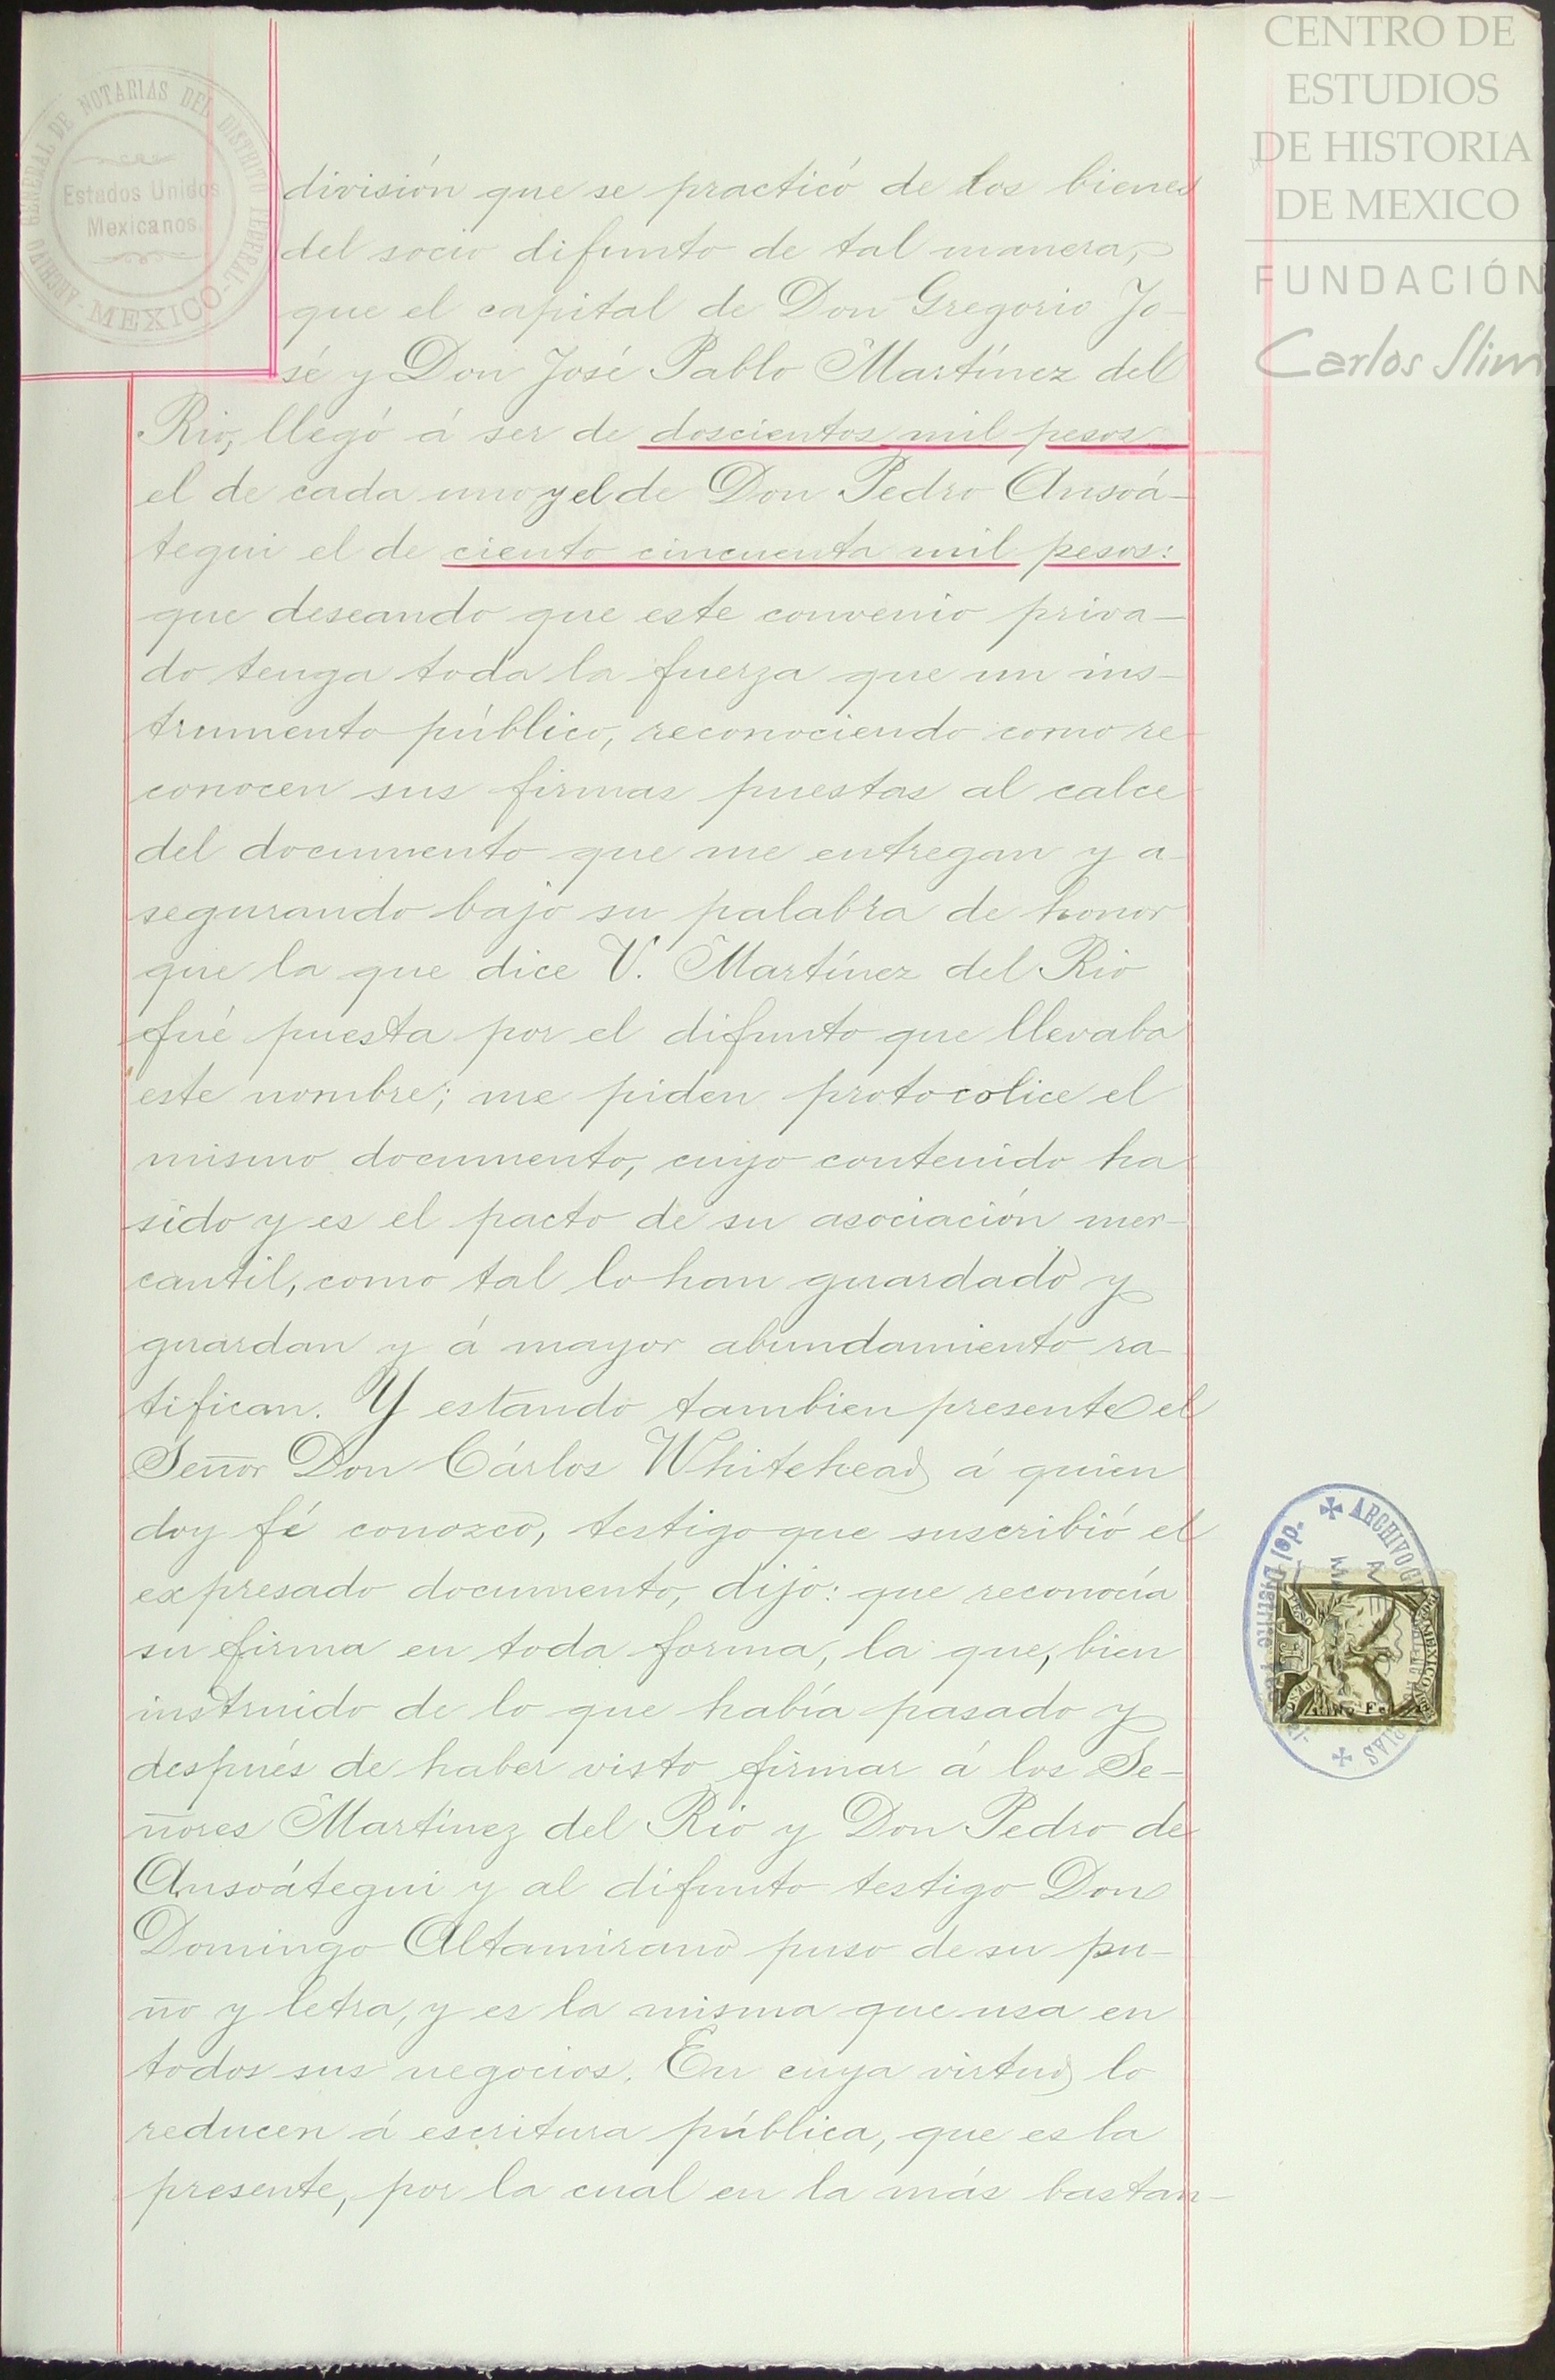 CENTRO DE
ESTUDIOS
DE HISTORIA
DE MEXICO
FUNDACIÓN
Carlos Slim
ARCHIVO GENERAL DE NOTARIAS DEL DISTRITO FEDERAL
Estados Unidos
Mexicanos
MEXICO
división que se practicó de los bienes
del socio difunto de tal manera,
que el capital de Don Gregorio Jo-
sé y Don José Pablo Martínez del
Rio, llegó á ser de doscientos mil pesos
el de cada uno y el de Don Pedro Ansoá-
tegui el de ciento cincuenta mil pesos:
que deseando que este convenio priva-
do tenga toda la fuerza que un ins-
trumento público, reconociendo como re-
conocen sus firmas puestas al calce
del documento que me entregan y a-
segurando bajo su palabra de honor
que la que dice V. Martínez del Rio
fué puesta por el difunto que llevaba
este nombre; me piden protocolice el
mismo documento, cuyo contenido ha
sido y es el pacto de su asociación mer-
cantil, como tal lo han guardado y
guardan y á mayor abundamiento ra-
tifican. Y estando tambien presente el
Señor Don Cárlos Whitehead á quien
doy fé conozco, testigo que suscribió el
expresado documento, dijo: que reconocía
su firma en toda forma, la que, bien
instruido de lo que había pasado y
después de haber visto firmar á los Se-
ñores Martínez del Rio y Don Pedro de
Ansoátegui y al difunto testigo Don
Domingo Altamirano puso de su pu-
ño y letra, y es la misma que usa en
todos sus negocios. En cuya virtud lo
reducen á escritura pública, que es la
presente, por la cual en la más bastan-
ARCHIVO
del Distrito
MEXICO
PESO